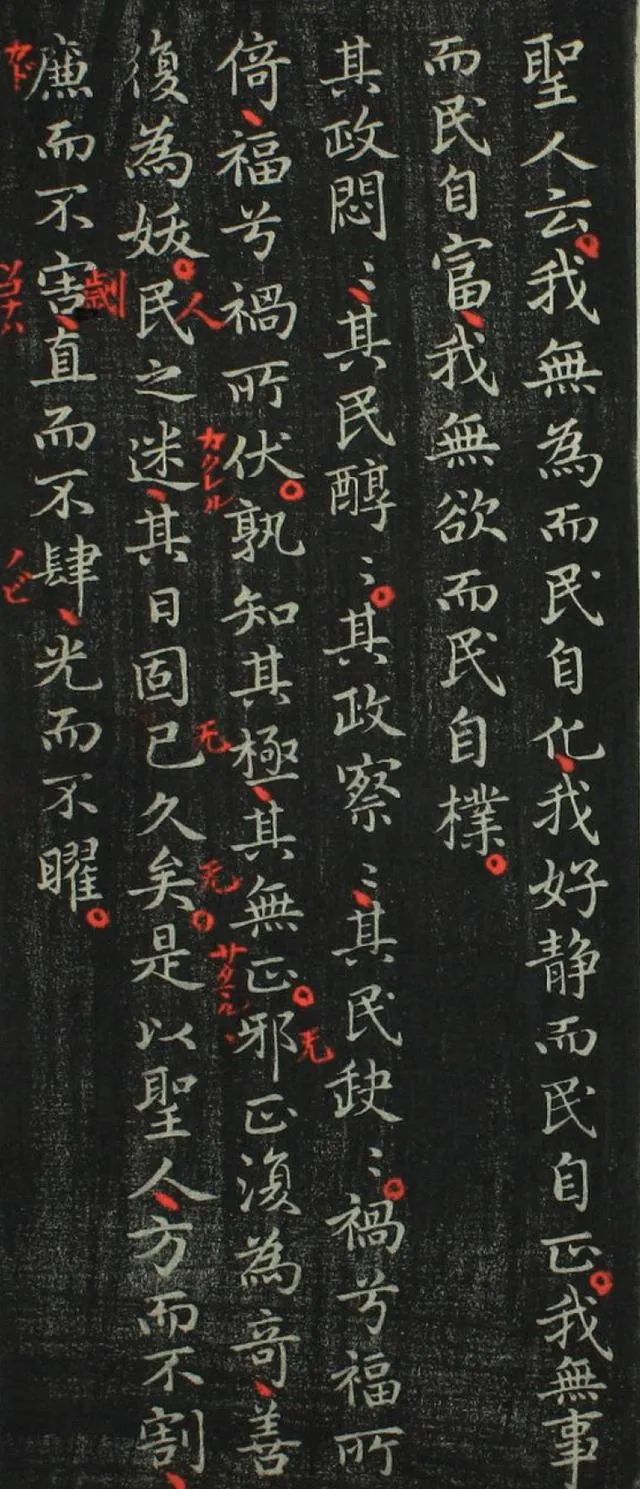 聖人云我無為而民自化我好静而民自正我無事
而民自富我無欲而民自樸
其政悶〻其民醇〻其政察〻其民缺〻禍兮福所
倚福兮禍所伏孰知其極其無正邪正復為奇善
人
カクレル
无
无
サタマル
无
復為妖民之迷其日固已久矣是以聖人方而不割
劌
廉而不害直而不肆光而不曜
カド
ノビ